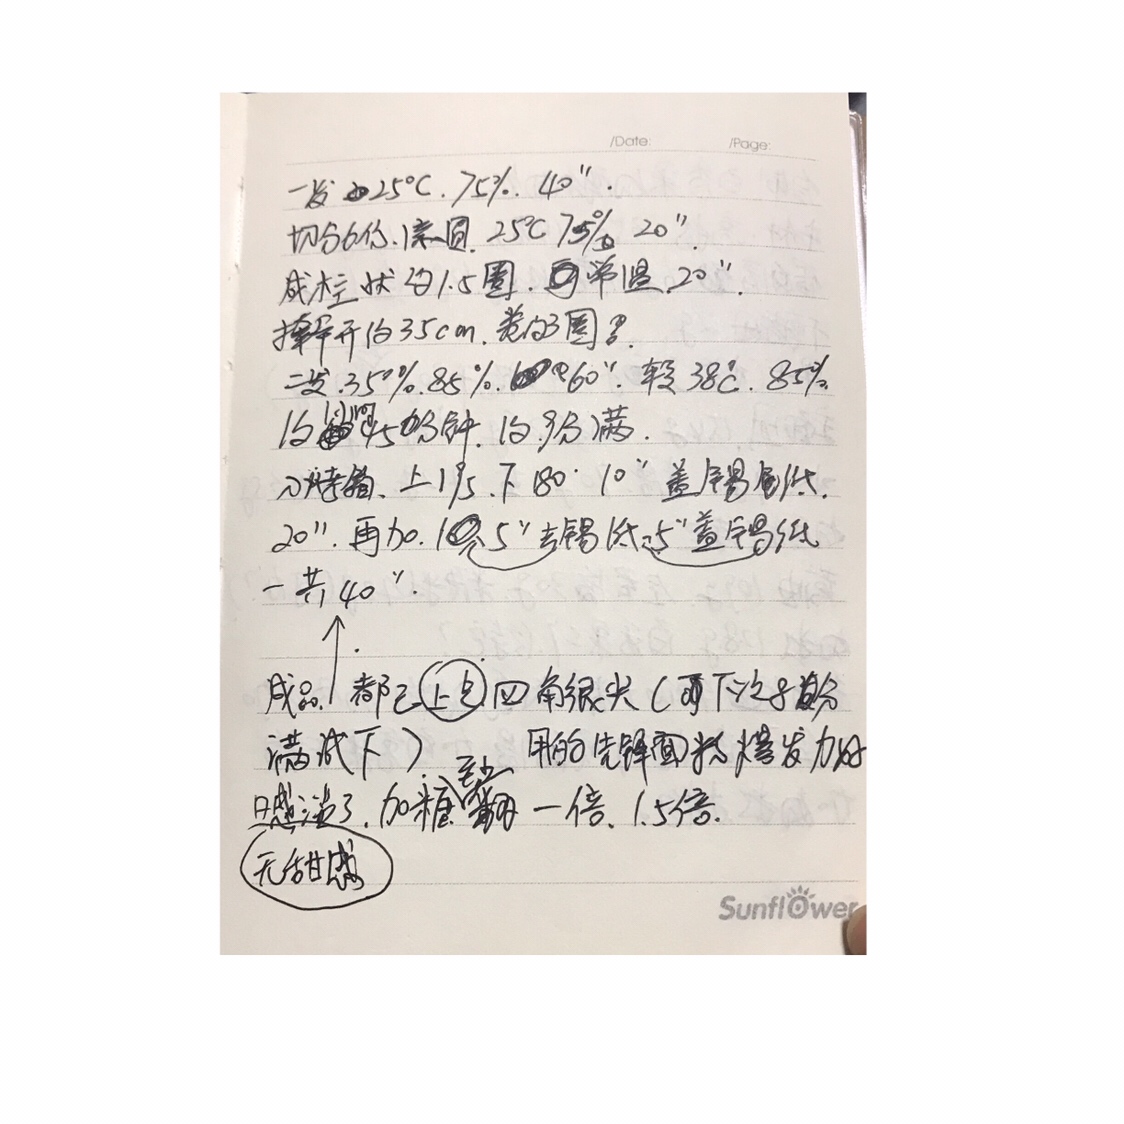 /Date: /Page:
一发 25℃. 75%. 40".
切分6份. 滚圆. 25℃ 75% 20".
成柱状 约1.5圈. 常温. 20".
擀开约35cm. 卷约3圈?.
二发. 35°%. 85%. 60". 38℃. 85%.
约 45分钟. 约. 9分满.
入烤箱. 上 下180° 10" 盖锡纸.
20". 再加. 5" 去锡纸 5" 盖锡纸
一共40".
成品. 都已上色 四角很尖(下次8分
满试下) 用的先锋面粉 爆发力好
口感淡了. 加糖 至少 翻 一倍. 1.5倍.
无甜感
Sunflower